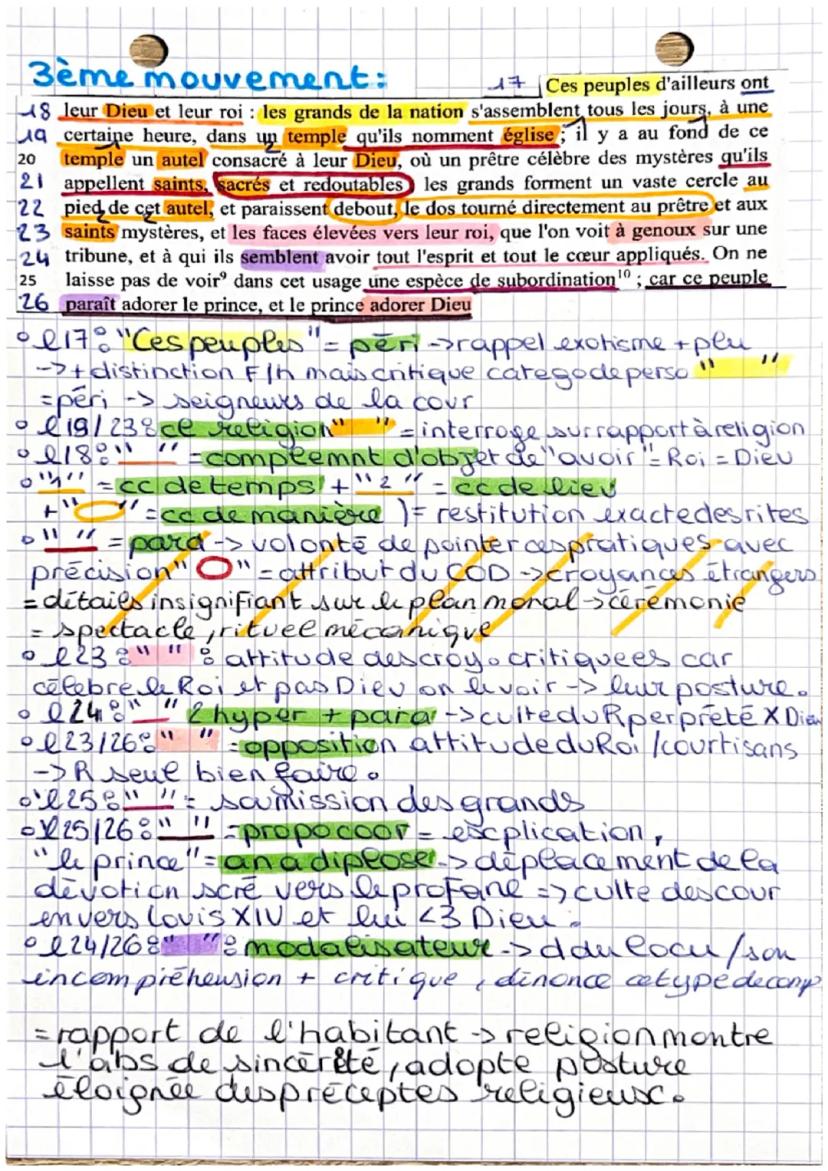 3ème mouvement:
17 Ces peuples d'ailleurs ont
18 leur Dieu et leur roi : les grands de la nation s'assemblent tous les jours, à une
19 certaine heure, dans un temple qu'ils nomment église ; il y a au fond de ce
20 temple un autel consacré à leur Dieu, où un prêtre célèbre des mystères qu'ils
21 appellent saints, sacrés et redoutables ; les grands forment un vaste cercle au
22 pied de cet autel, et paraissent debout, le dos tourné directement au prêtre et aux
23 saints mystères, et les faces élevées vers leur roi, que l'on voit à genoux sur une
24 tribune, et à qui ils semblent avoir tout l'esprit et tout le cœur appliqués. On ne
25 laisse pas de voir⁹ dans cet usage une espèce de subordination¹⁰ ; car ce peuple
26 paraît adorer le prince, et le prince adorer Dieu
° l17: "Ces peuples" = péri -> rappel exotisme + plu
-> + distinction F/h mais critique catego de perso " "
= péri -> seigneurs de la cour
° l19/23: cl religion " " = interroge sur rapport à religion
° l18: " " = complemnt d'objet de "avoir" = Roi = Dieu
° "1" = cc de temps + "2" = cc de lieu
+ " " = cc de manière ) = restitution exacte des rites
° " " = para -> volonté de pointer ces pratiques avec
précision " " = attribut du COD -> croyances étrangers
= détails insignifiant sur le plan moral -> cérémonie
= spectacle, rituel mécanique
° l23: " " : attitude des croy. critiquees car
célèbre le Roi et pas Dieu on le voir -> leur posture.
° l24: " " 2 hyper + para -> culte du R perpreté X Dieu
° l23/26: " " = opposition attitude du Roi / courtisans
-> R seul bien faire.
° l25: " " = soumission des grands
° l25/26: " " = propo coor = escplication,
"le prince" = anadiplose -> déplacement de la
dévotion scré vers le profane => culte des cour
envers Louis XIV et lui <3 Dieu.
° l24/26: " " : modalisateur -> d du locu / son
incompréhension + critique, dénonce ce type de comp
= rapport de l'habitant -> religion montre
l'abs de sincérité, adopte posture
éloignée des préceptes religieux.